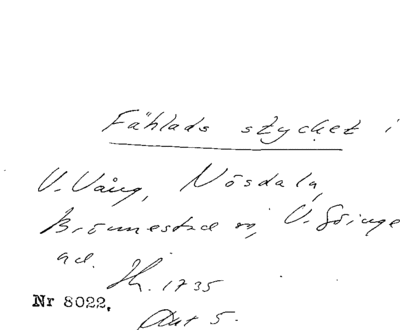 Fåhlads stycket i
V. Vång, Nösdala,
Brönnestad sn, V. Göinge
hd. Jh. 1735
Nr 8022.
Akt 5.